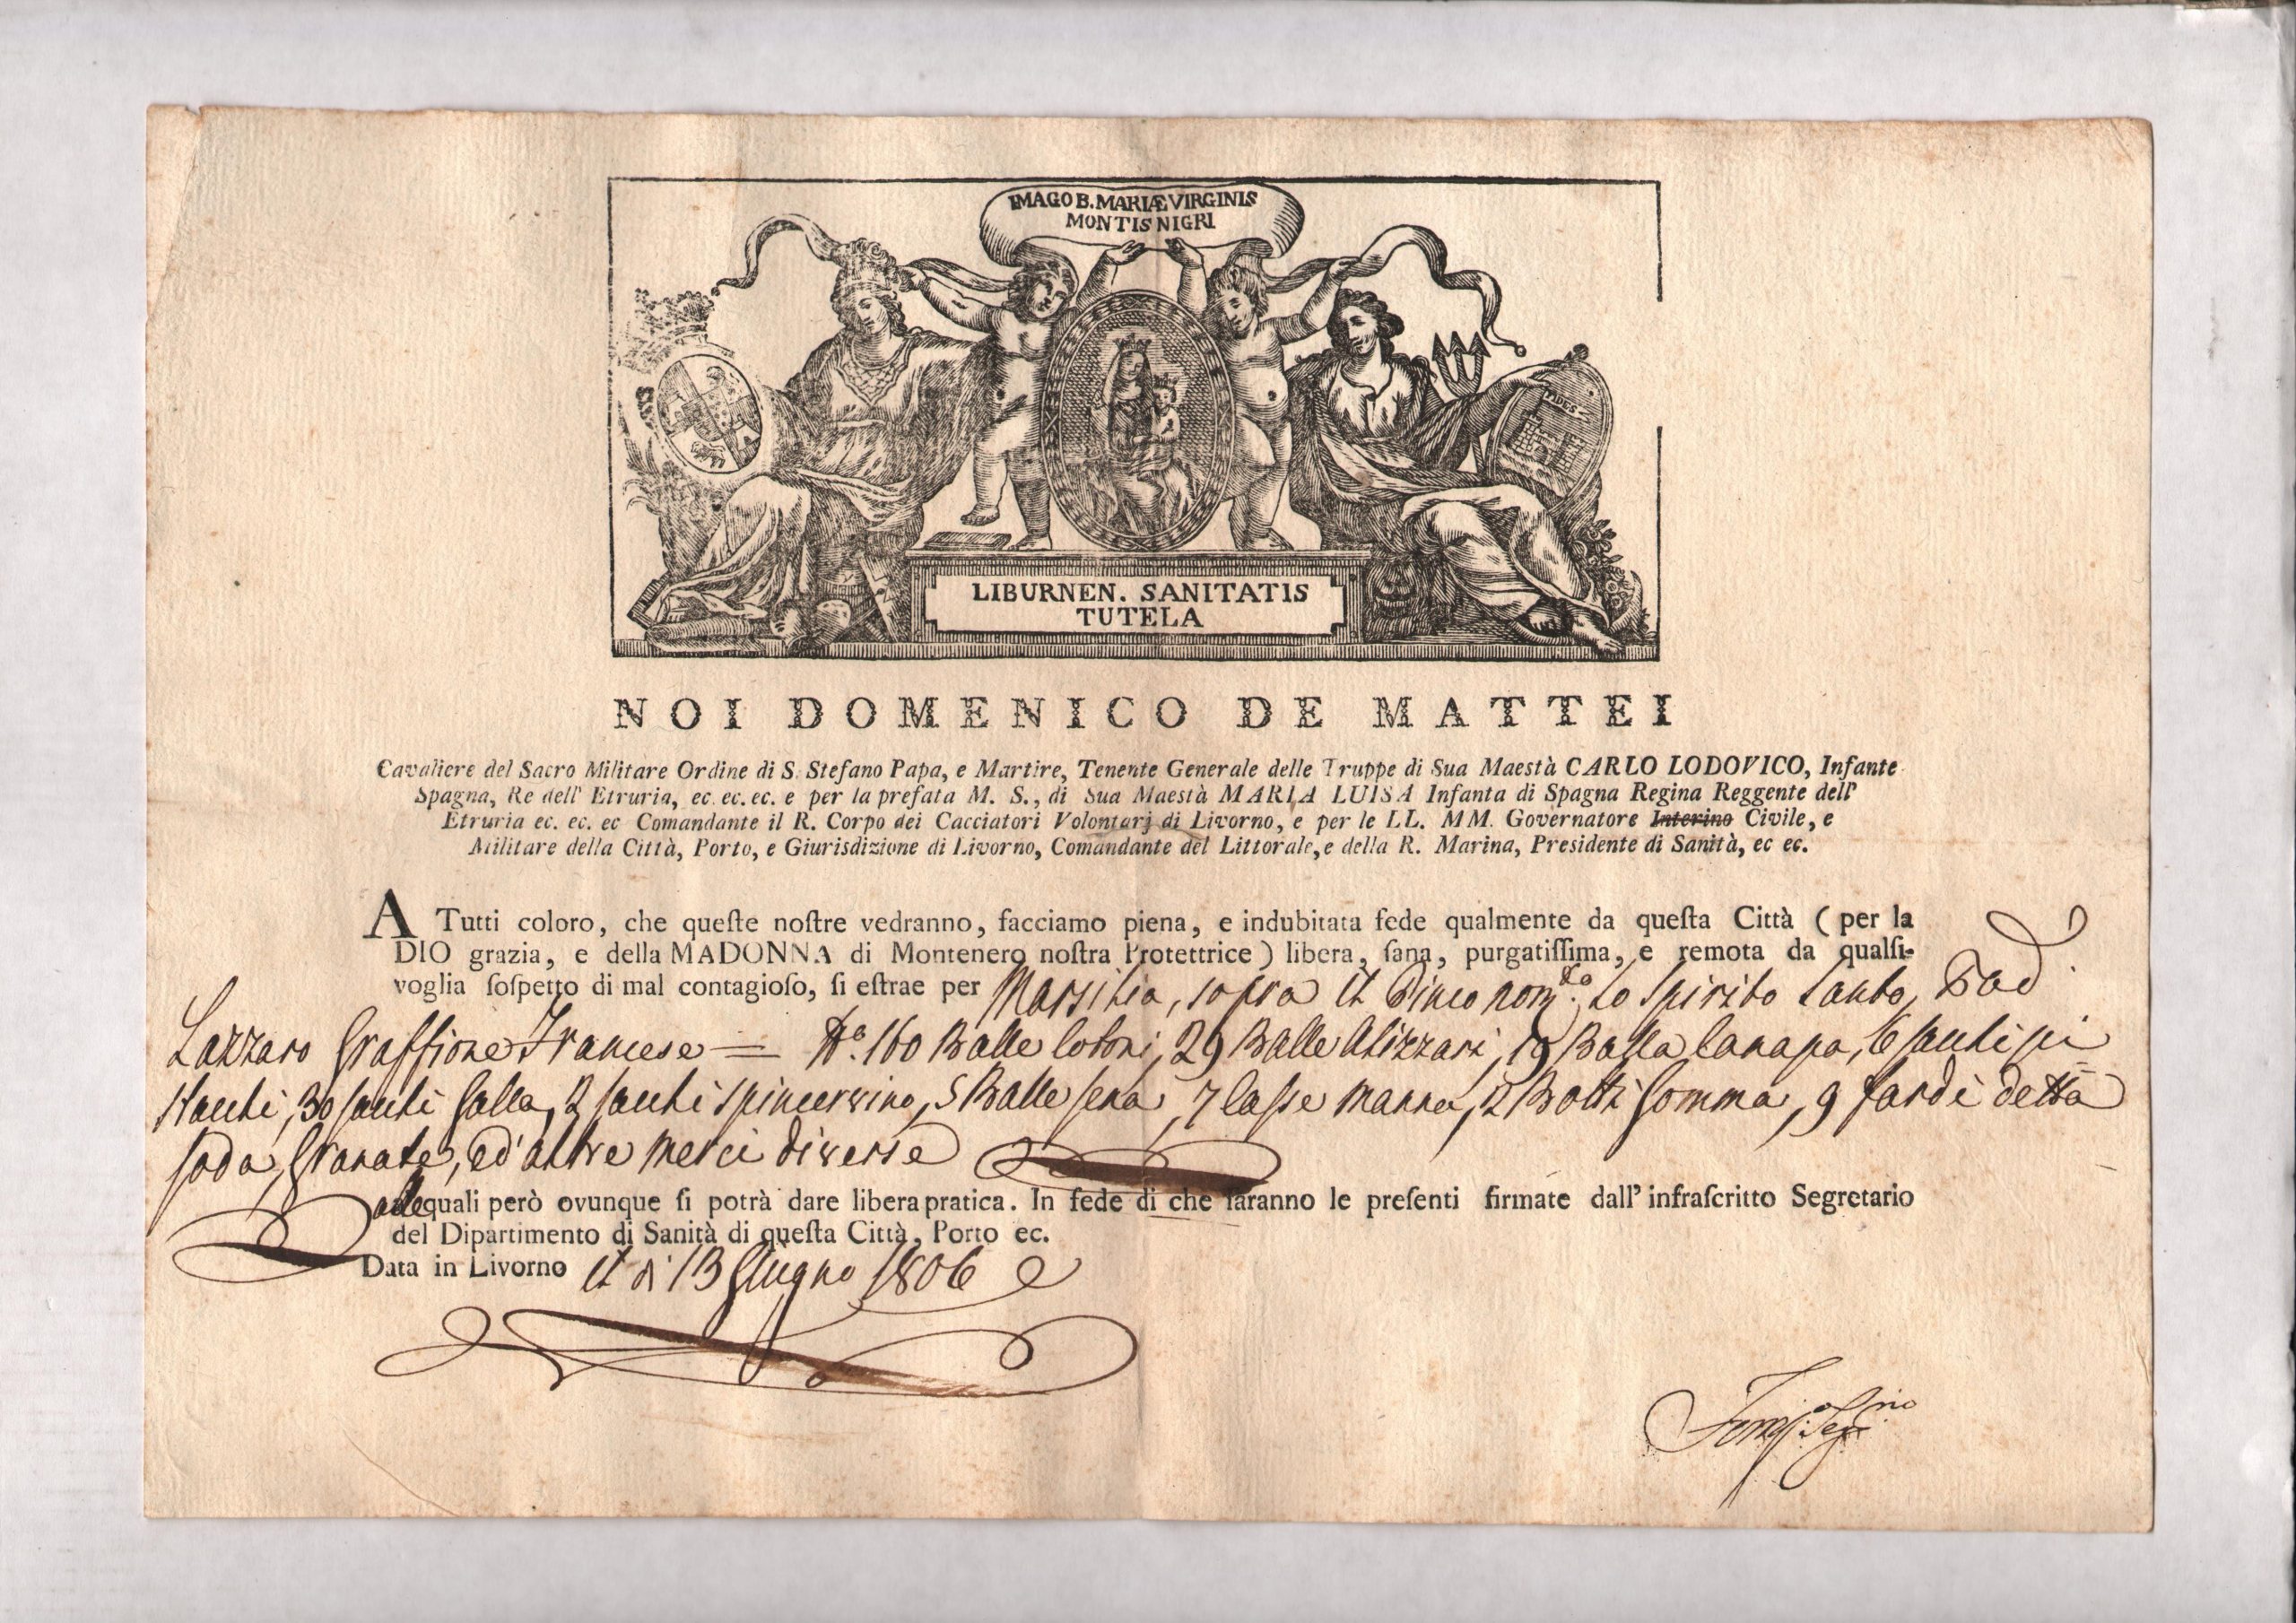 IMAGO B. MARIÆ VIRGINIS
MONTIS NIGRI
FIDES
LIBURNEN. SANITATIS
TUTELA
NOI DOMENICO DE MATTEI
Cavaliere del Sacro Militare Ordine di S. Stefano Papa, e Martire, Tenente Generale delle Truppe di Sua Maestà CARLO LODOVICO, Infante
Spagna, Re dell' Etruria, ec. ec. ec. e per la prefata M. S., di Sua Maestà MARIA LUISA Infanta di Spagna Regina Reggente dell'
Etruria ec. ec. ec Comandante il R. Corpo dei Cacciatori Volontarj di Livorno, e per le LL. MM. Governatore Interino Civile, e
Militare della Città, Porto, e Giurisdizione di Livorno, Comandante del Littorale, e della R. Marina, Presidente di Sanità, ec ec.
A Tutti coloro, che queſte noſtre vedranno, facciamo piena, e indubitata fede qualmente da queſta Città ( per la
DIO grazia, e della MADONNA di Montenero noſtra Protettrice ) libera, ſana, purgatiſſima, e remota da qualſi-
voglia ſoſpetto di mal contagioſo, ſi eſtrae per Marsilia, sopra il nom.to Lo Spirito Santo, Pad
Lazzaro Graffione Francese = N.o 160 Balle Cotoni, 29 Balle Alizzari, 19 Balla Canapa, 6 sacchi pi
stacchi, 30 sacchi Galla, 2 sacchi spincervino, 5 Balle sena, 7 Casse manna, 2 Botti Gomma, 9 fardi detta
soda, Granate, ed' altre merci diverse
alle quali però ovunque ſi potrà dare libera pratica. In fede di che ſaranno le preſenti firmate dall' infraſcritto Segretario
del Dipartimento di Sanità di queſta Città, Porto ec.
Data in Livorno il di 13 Giugno 1806
Seg.rio